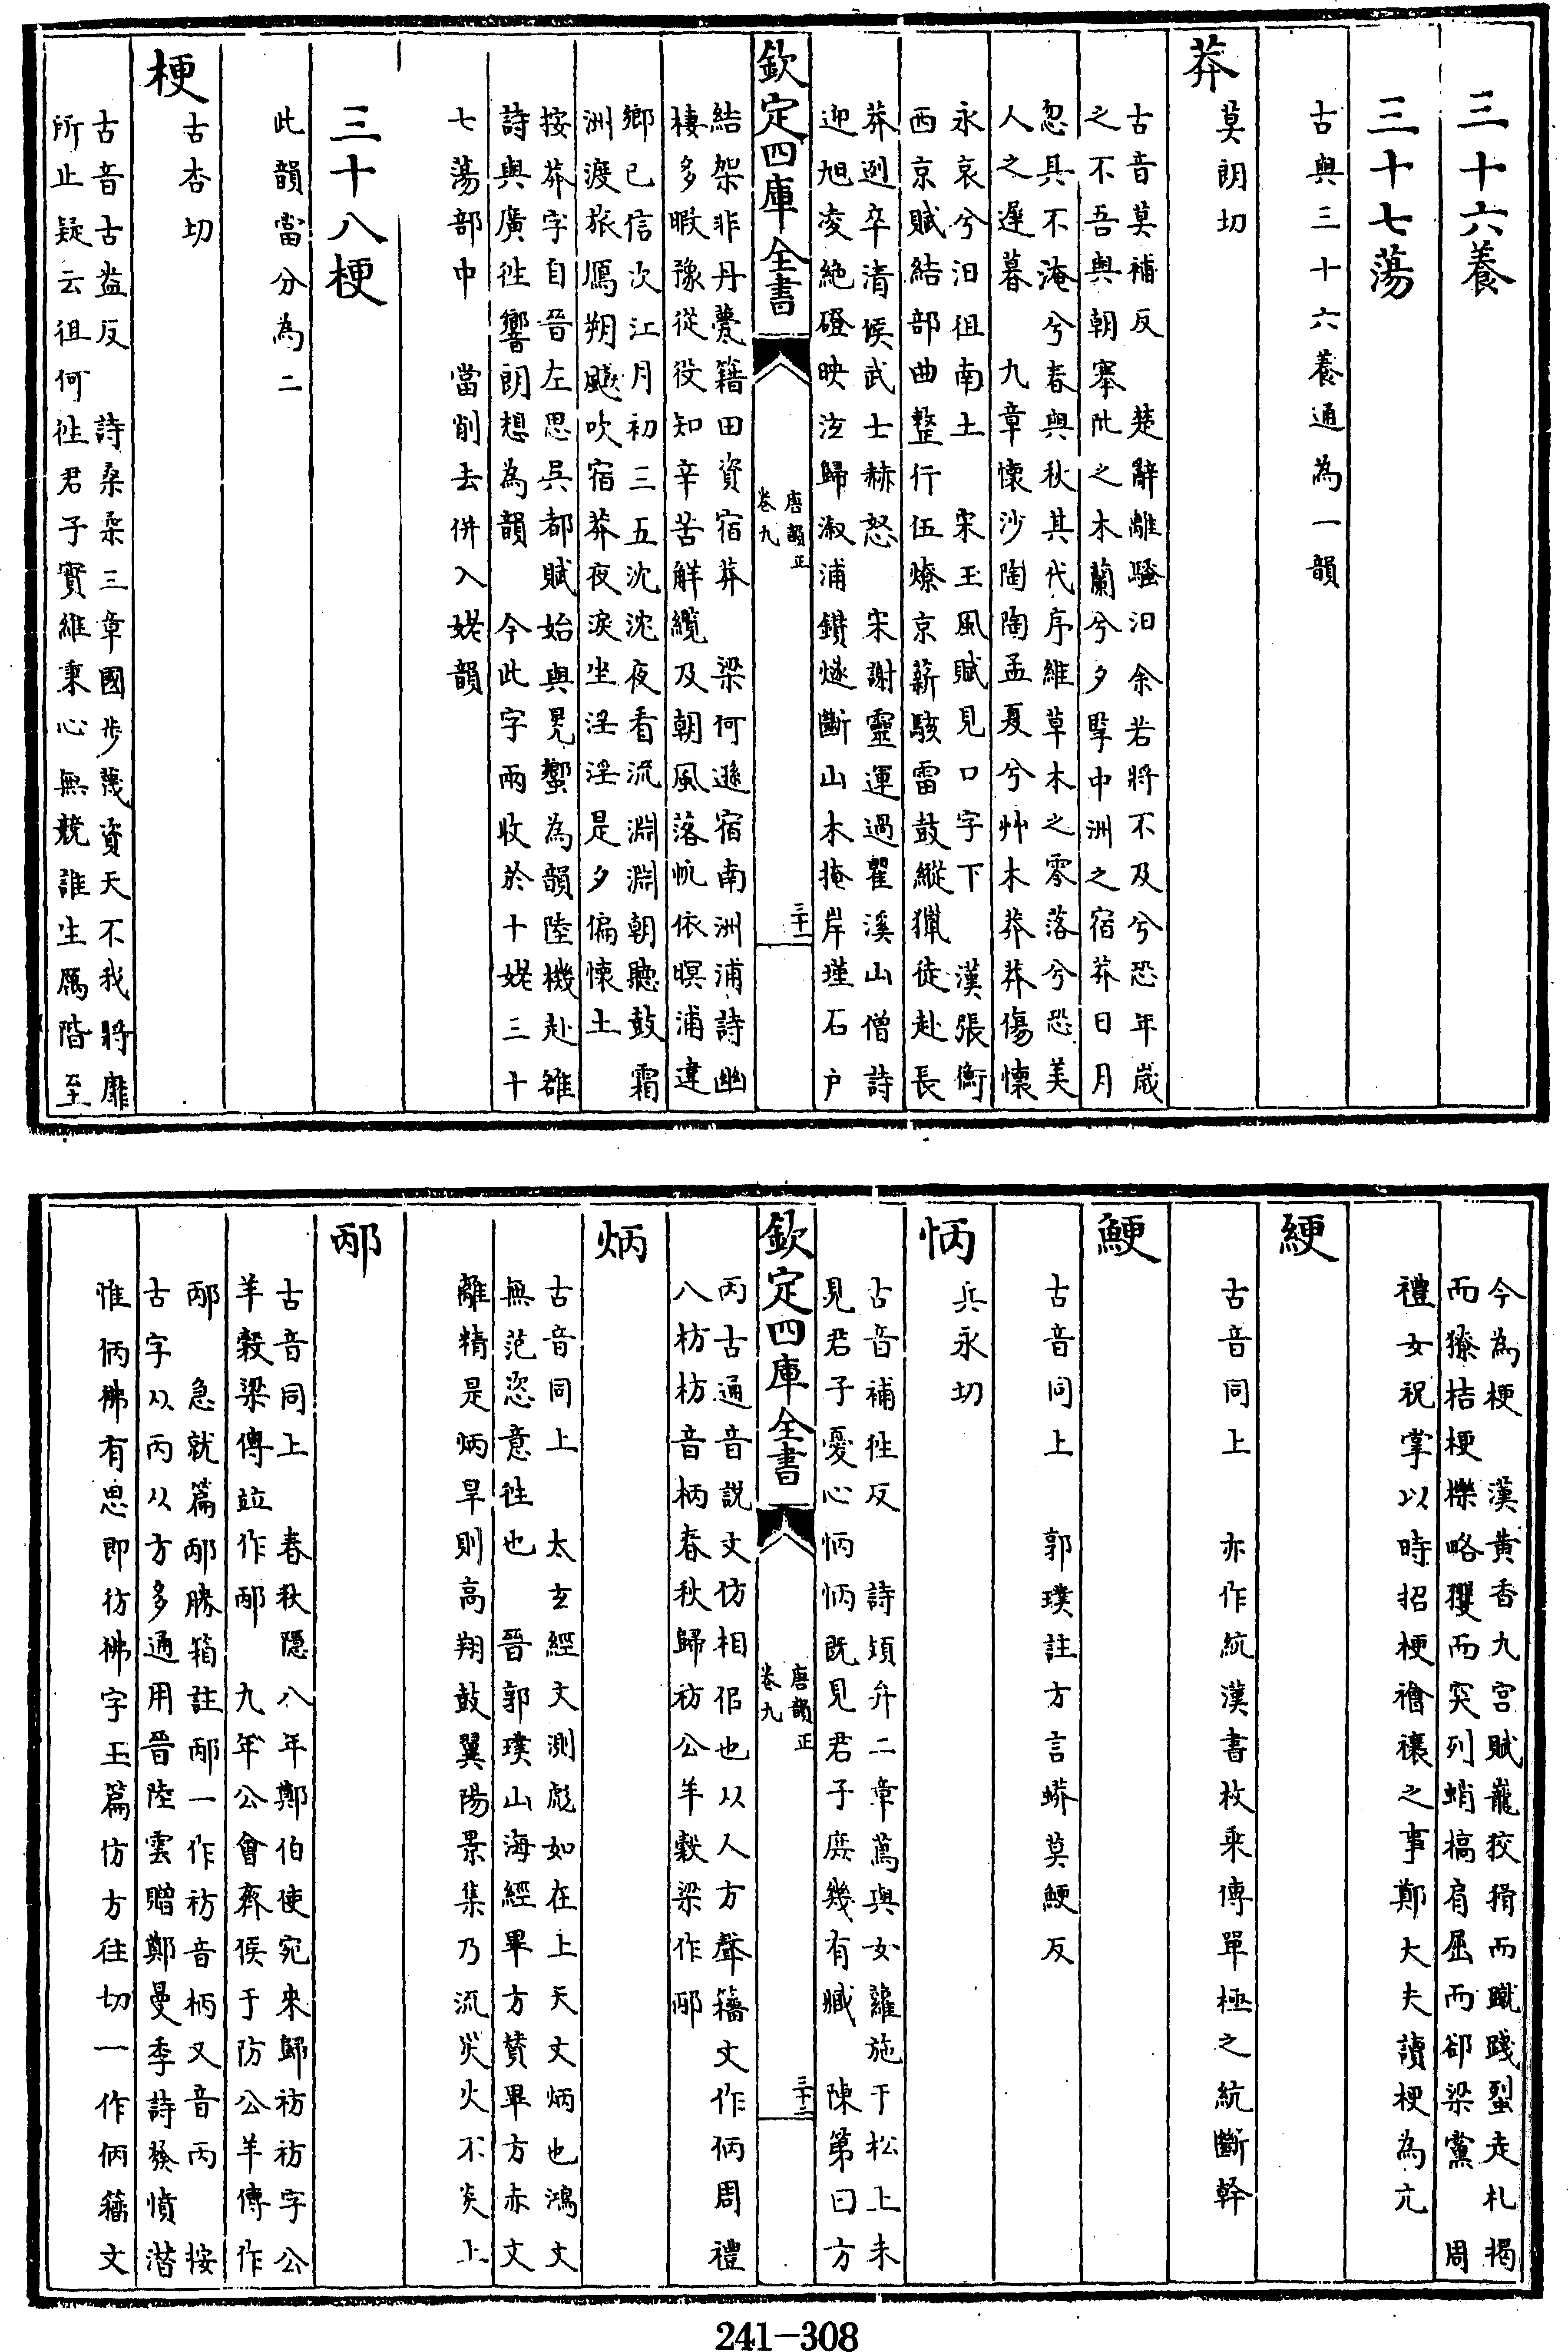 三十六養
三十七蕩
古與三十六養通為一韻
莽
莫朗切
古音莫補反　楚辭離騷汨余若將不及兮恐年歲
之不吾與朝搴阰之木蘭兮夕擥中洲之宿莽日月
忽其不淹兮春與秋其代序維草木之零落兮恐美
人之遲暮　九章懷沙陶陶孟夏兮艸木莽莽傷懷
永哀兮汨徂南土　宋玉風賦見口字下　漢張衡
西京賦結部曲整行伍燎京薪駭雷鼓縱獵徒赴長
莽迾卒清候武士赫怒　宋謝靈運過瞿溪山僧詩
迎旭凌絶磴映泫歸溆浦鑚燧斷山木掩岸墐石户
欽定四庫全書
唐韻正
卷九
三十一
結架非丹甍籍田資宿莽　梁何遜宿南洲浦詩幽
棲多暇豫從役知辛苦解纜及朝風落帆依暝浦違
鄉已信次江月初三五沈沈夜看流淵淵朝聽鼓霜
洲渡旅鴈朔飈吹宿莽夜淚坐淫淫是夕偏懷土
按莽字自晉左思吳都賦始與晃蠁為韻陸機赴雒
詩與廣徃響朗想為韻　今此字兩收於十姥三十
七蕩部中　當削去併入姥韻
三十八梗
此韻當分為二
梗
古杏切
古音古盎反　詩桑柔三章國步蔑資天不我將靡
所止疑云徂何徃君子實維秉心無競誰生厲階至
今為梗　漢黄香九宫賦龍狡猾而蹴踐䂨走札揭
而獠桔梗櫟略玃而突列蛸槁肩屈而郤梁黨　周
禮女祝掌以時招梗禬禳之事鄭大夫讀梗為亢
綆
古音同上　亦作統漢書枚乘傳單極之統斷幹
鯁
古音同上　郭璞註方言蟒莫鯁反
怲
兵永切
古音補徃反　詩頍弁二章蔦與女蘿施于松上未
見君子憂心怲怲既見君子庶幾有臧　陳第曰方
欽定四庫全書
唐韻正
卷九
三十二
丙古通音説文仿相佀也从人方聲籀文作㑂周禮
八枋枋音柄春秋歸祊公羊榖梁作邴
炳
古音同上　太玄經文測彪如在上天文炳也鴻文
無范恣意徃也　晉郭璞山海經畢方賛畢方赤文
離精是炳旱則高翔鼓翼陽景集乃流災火不炎上
邴
古音同上　春秋隱八年鄭伯使宛來歸祊祊字公
羊榖梁傳竝作邴　九年公會齊侯于防公羊傳作
邴　急就篇邴勝箱註邴一作祊音柄又音丙　按
古字从丙从方多通用晉陸雲贈鄭曼季詩發憤潜
惟㑂彿有思即彷彿字玉篇仿方往切一作㑂籀文
241—308